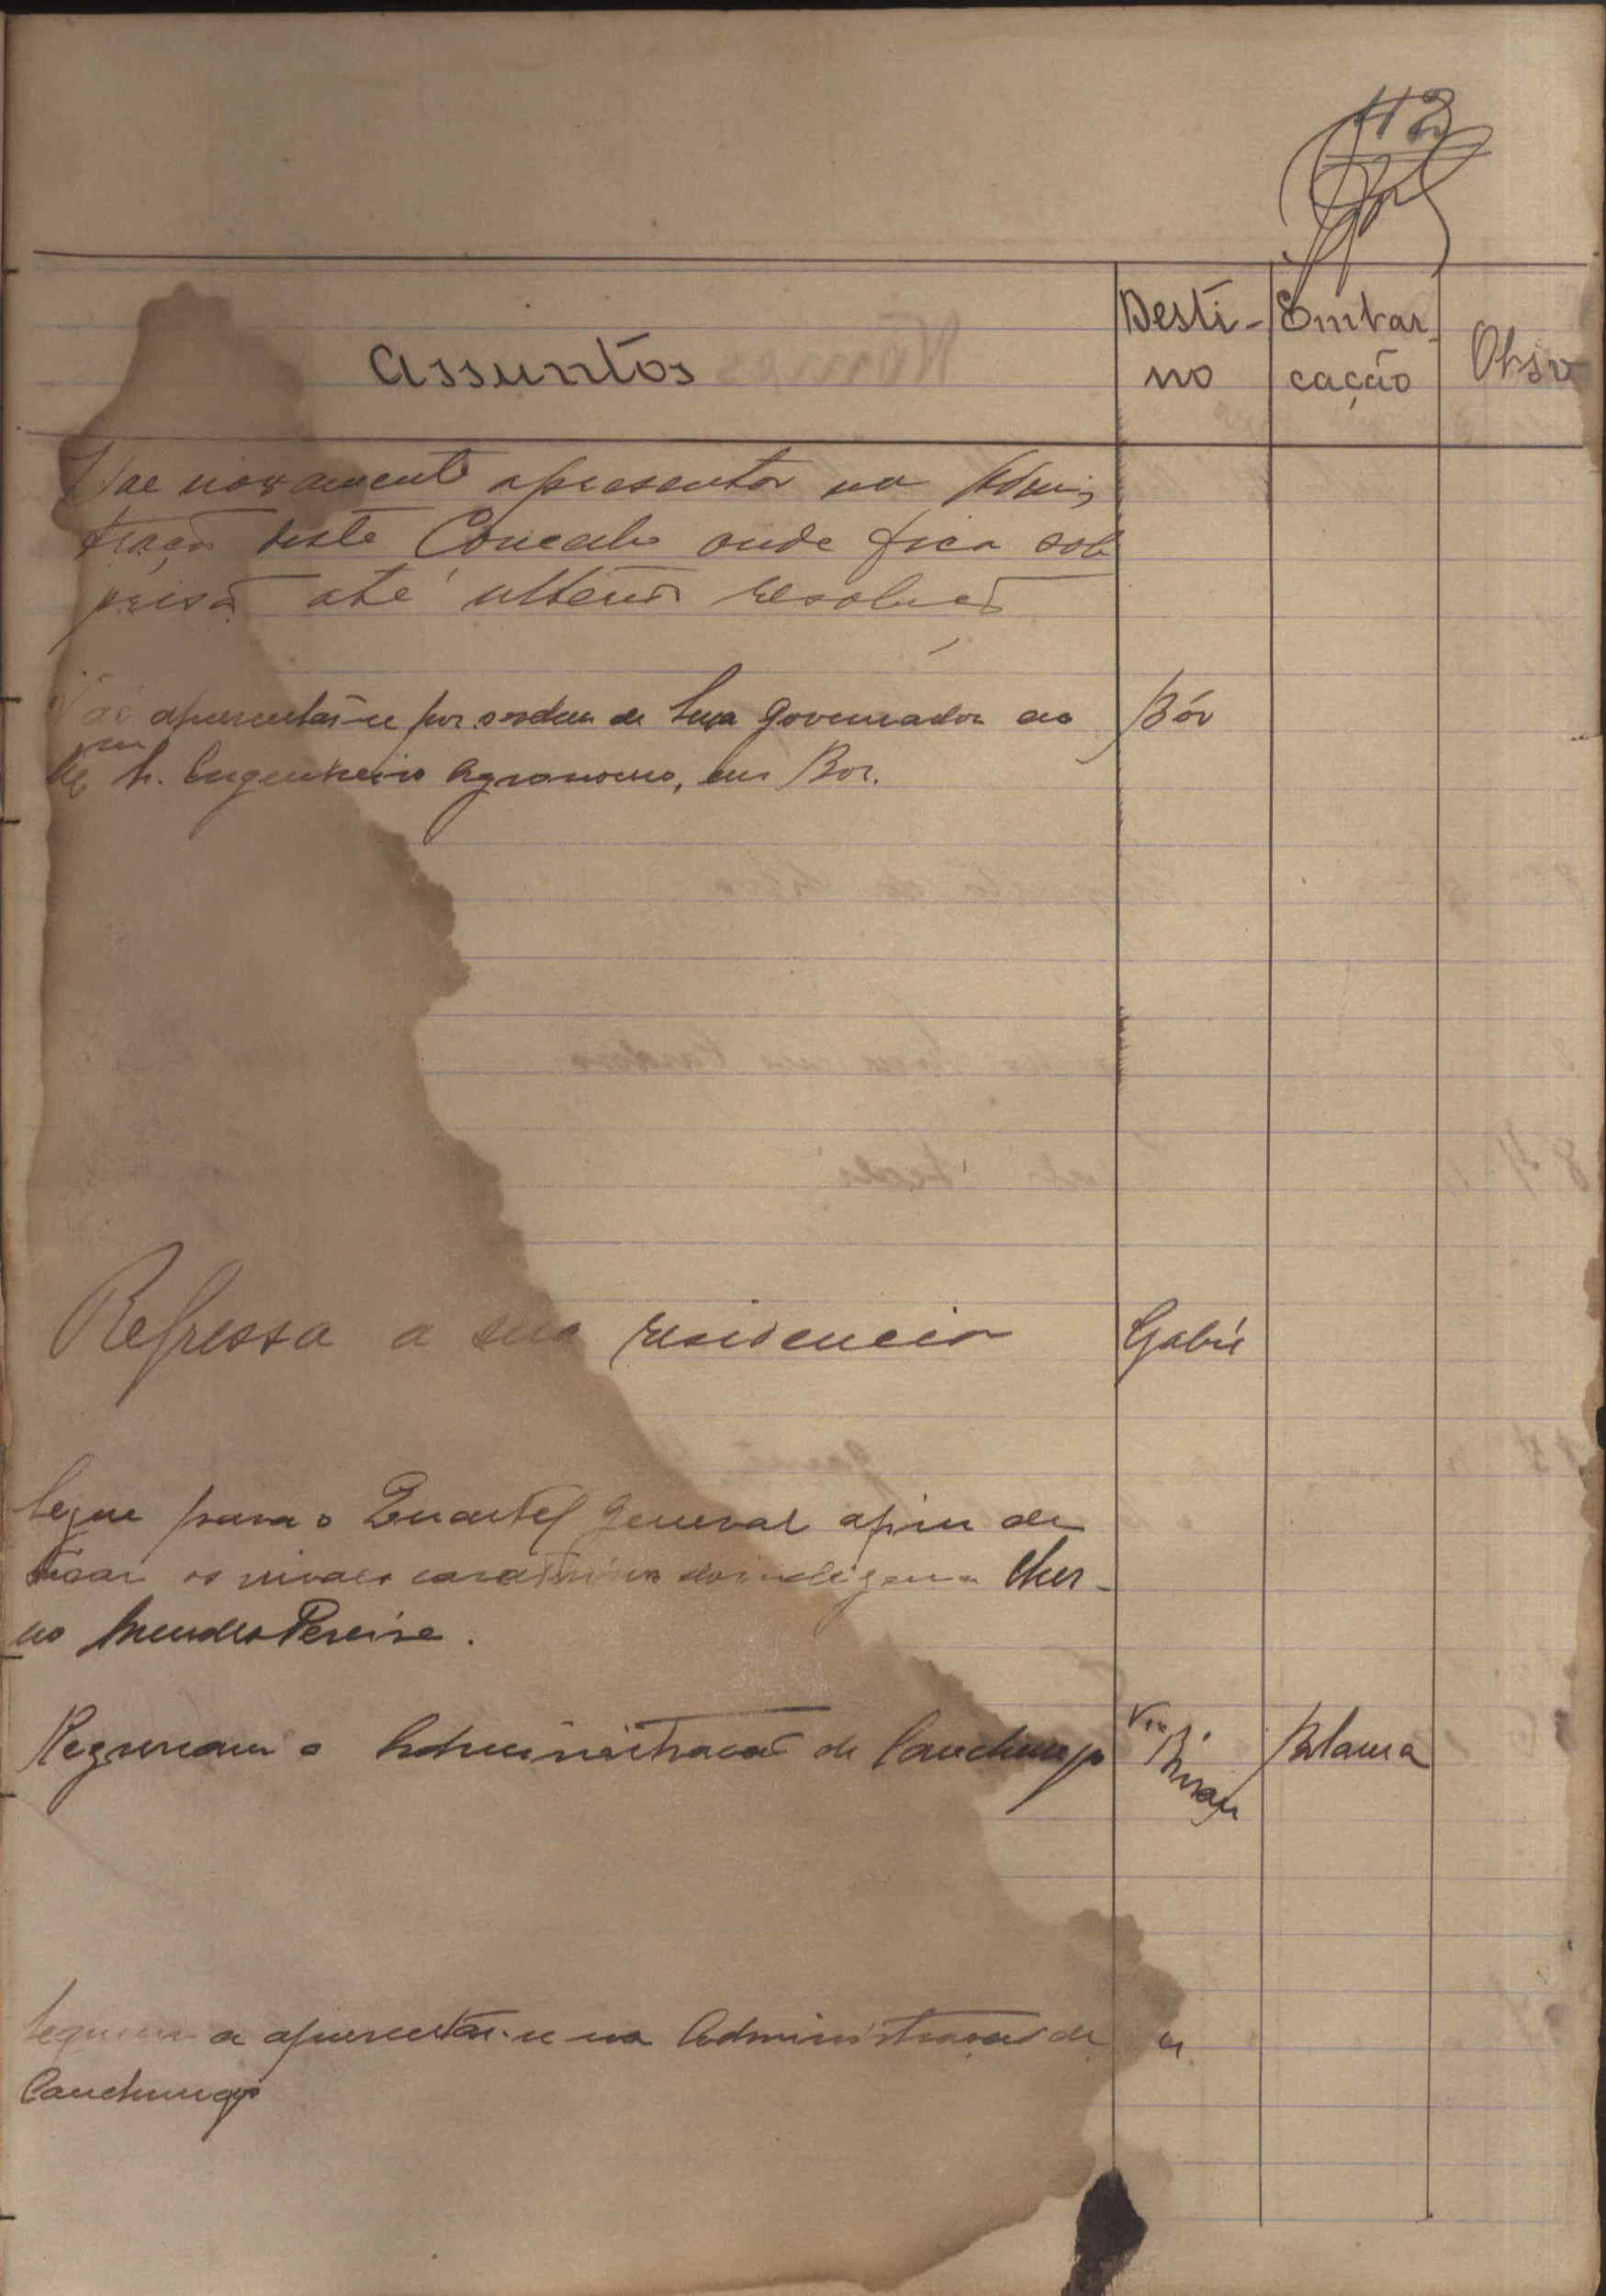 112
Assuntos
Desti-
no
Embar
cação
Obsv
Vae novamente apresentar na Adminis
tração deste Concelho onde fica sob
prisão até ulterior resolução
Vae apresentar-se por ordem de Sua Governador ao
Sr. Engenheiro Agronomo, em Bor.
Bór
Regressa a sua residencia
Gabú
Segue para o Quartel General afim de
tirar os sinaes do indigena Cher-
no Mendes Pereira.
Regressam a Administração de Canchungo
Via
Bissau
Bolama
Seguem a apresentar-se na Administração de
Canchungo